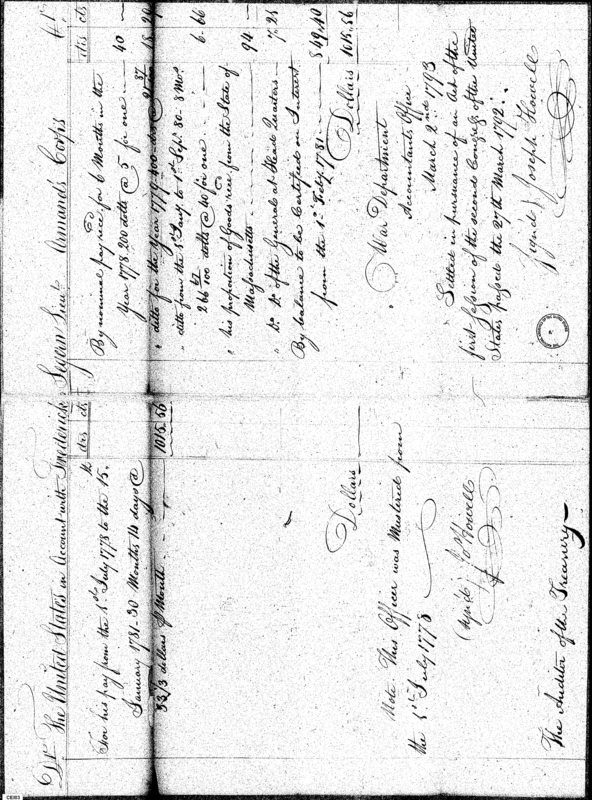 Dr. The United States in Account with Frederick Segern Lieut Armand's Corps Cr.
dlrs cts
For his pay from the 1st July 1778 to the 15.th
January 1781. 30 Months 14 days @
33 1/3 dollars p Month 1015.56
Dollars
Note This Officer was Mustered from
the 1st July 1778
(signed) Jos Howell
The Auditor of the Treasury
dlrs cts
By nominal pay rec.d for 6 Months in the
Year 1778 200 dolls @ 5 for one 40
" ditto for the Year 1779 400 dolls @
" ditto from the 1st Jany to 1st Sept 80. 8 Mos.
266 dolls @ 40 for one 6.66
" his proportion of Goods rec.d from the State of
Massachusetts 94
" Do. Do. of the General at Head Quarters 7.25
By balance to be Certified on Interest
from the 1st July 1781 849.40
Dollars 1015.56
War Department
Accountants Office
March 2nd 1793
Settled in pursuance of an Act of the
first Session of the second Congress of the United
States passed the 27th March 1792.
Signed Joseph Howell